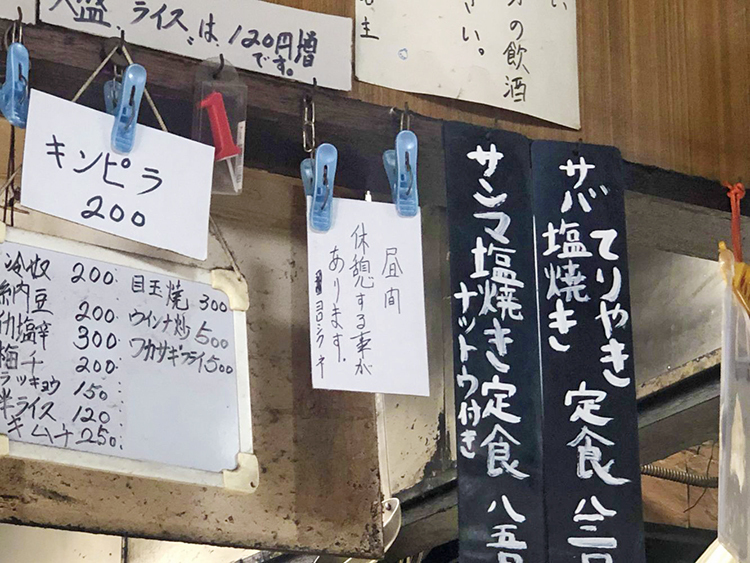 大盛ライスは、120円増
です。
の飲酒
さい。
い
キンピラ
200
1
冷奴 200
納豆 200
塩辛 300
梅干 200
ラッキョウ 150
半ライス 120
キムチ 250
目玉焼 300
ウインナ炒 500
ワカサギフライ 500
昼間
休憩する事が
あります。
サンマ塩焼き定食 八五
ナットウ付き
サバ塩焼き
てりやき 定食 八二